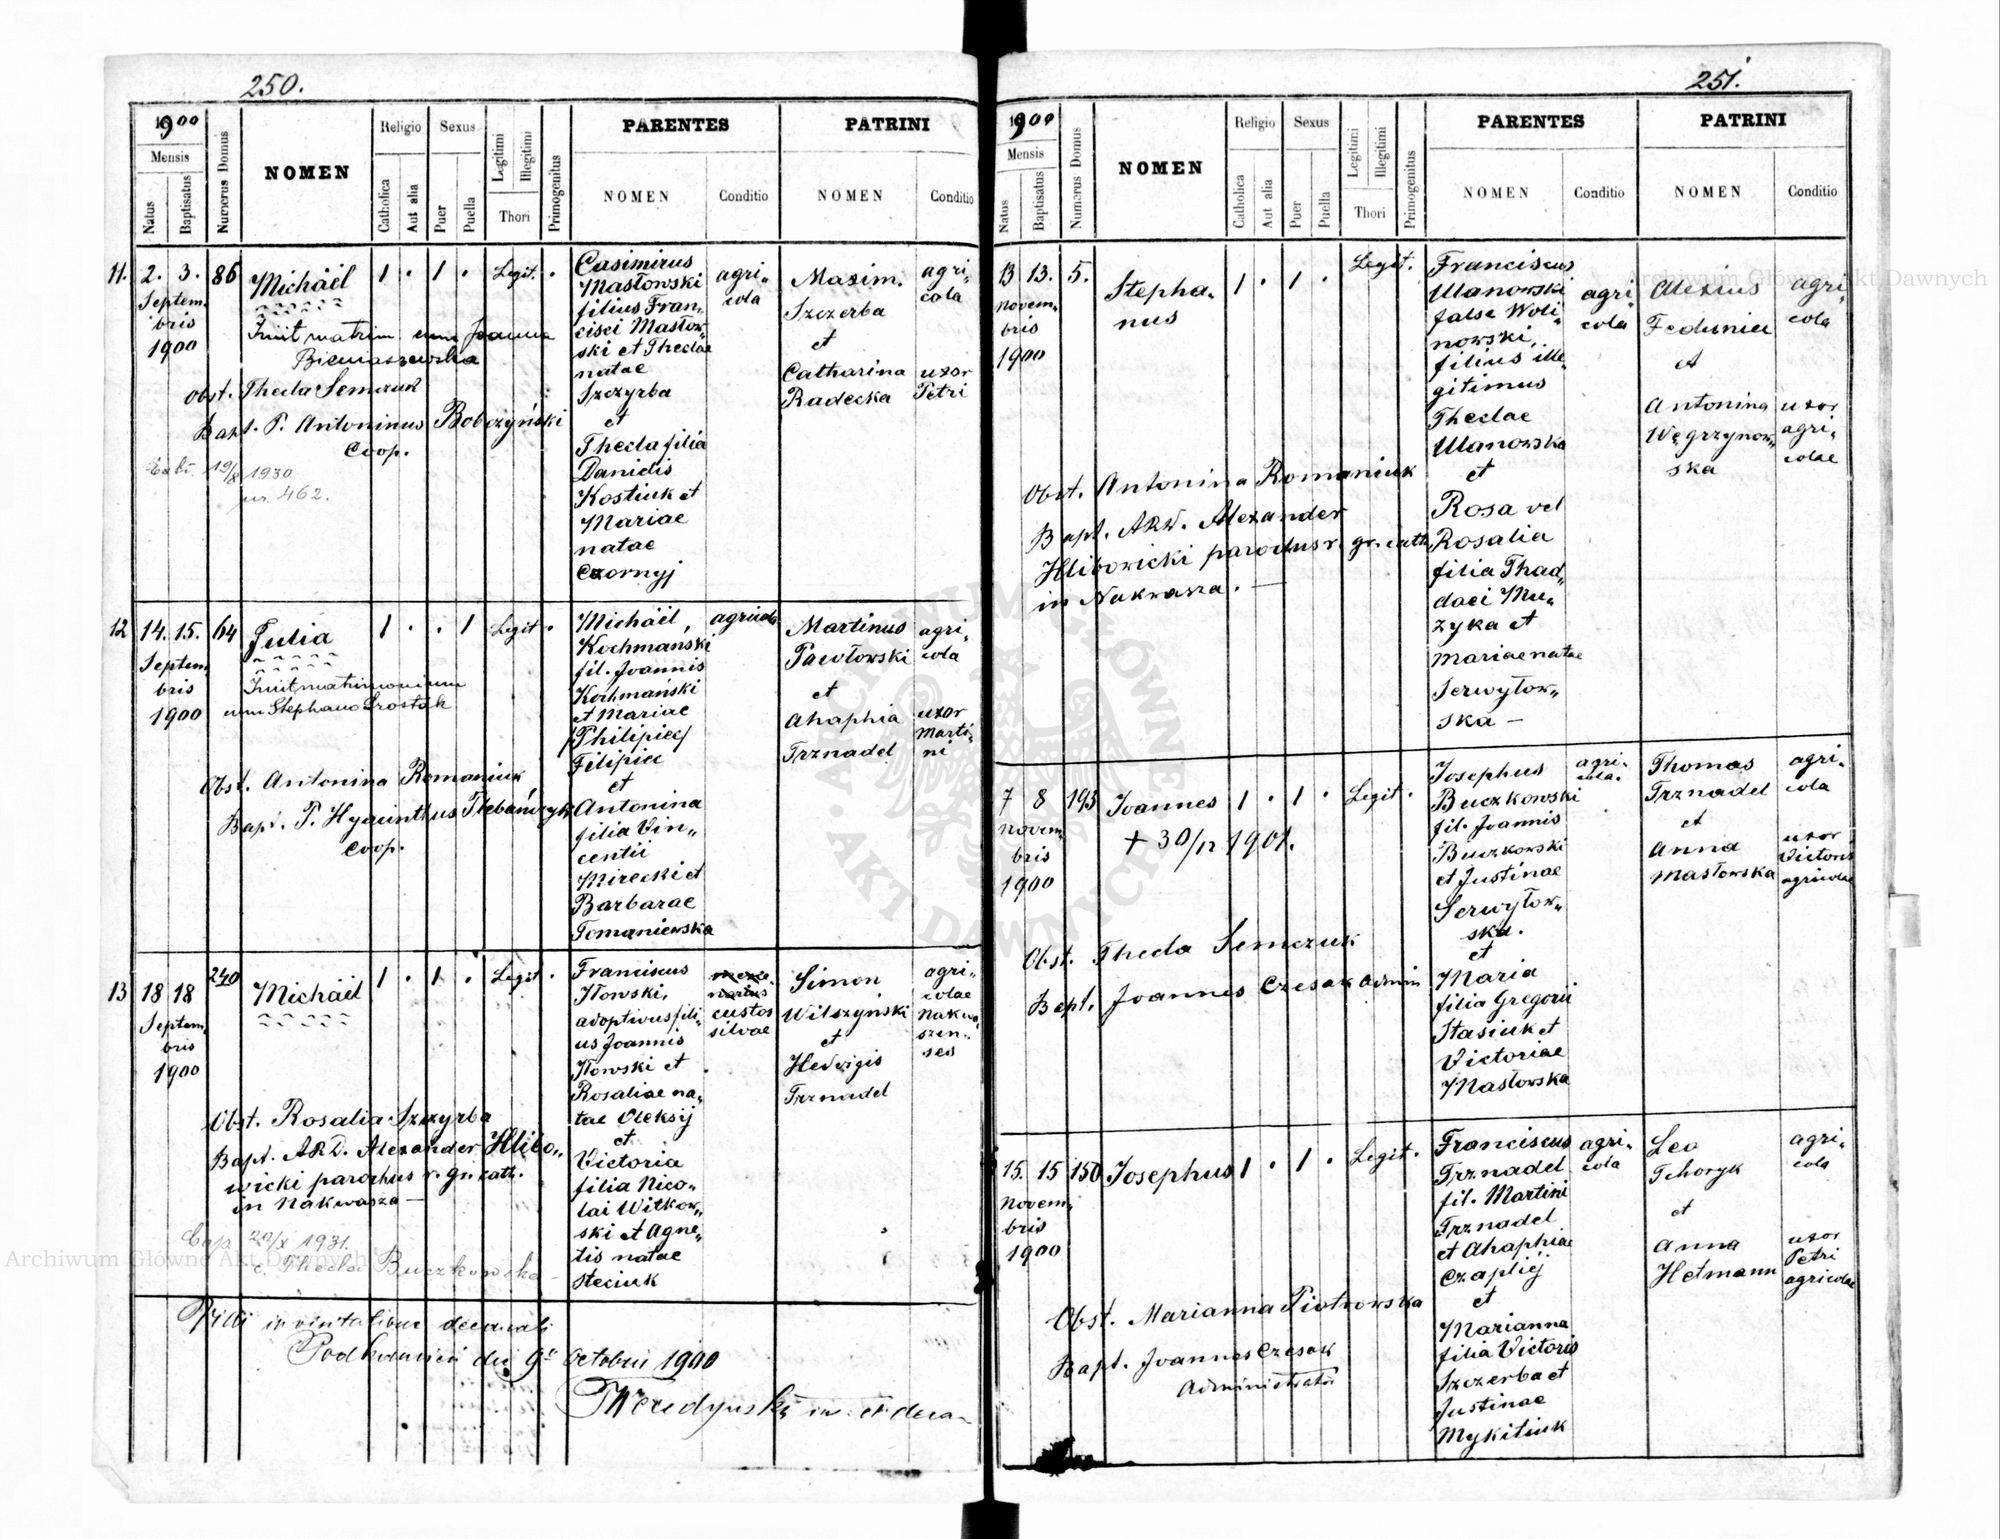 250.
1900
Mensis
Natus
Baptisatus
Numerus Domus
NOMEN
Religio
Catholica
Aut alia
Sexus
Puer
Puella
Legitimi
Illegitimi
Thori
Primogenitus
PARENTES
NOMEN
Conditio
PATRINI
NOMEN
Conditio
11. 2. 3. 86
Septem-
bris
1900
Michäel
1 . 1 . Legit. .
Iniit matrim. cum Joanna
Biernaszewska
Obst. Thecla Semczuk
Bapt. P. Antoninus Bobczyński
Coop.
19/8 1930
nr. 462.
Casimirus
Masłowski
filius Fran-
cisci Masłow-
ski et Theclae
natae
Szczyrba
et
Thecla filia
Danielis
Kostiuk et
Mariae
natae
Czornyj
agri-
cola
Maxim.
Szczerba
et
Catharina
Radecka
agri-
cola
uxor
Petri
12 14. 15. 64
Septem-
bris
1900
Julia
1 . . 1 Legit .
Iniit matrimonium
cum Stephano Szostak
Obst. Antonina Romaniuk
Bapt. P. Hyacinthus Plebańczyk
Coop.
Michäel,
Kochmanski
fil. Joannis
Kochmański
et Mariae
/Philipiec/
Filipiec
et
Antonina
filia Vin-
centii
Mirecki et
Barbarae
Tomaniewska
agricola
Martinus
Pawłowski
et
Ahaphia
Trznadel
agri-
cola
uxor
Marti-
ni
13 18 18 240
Septem-
bris
1900
Michäel
1 . 1 . Legit .
Obst. Rosalia Szczyrba
Bapt. ARD. Alexander Hlibo-
wicki parochus r. gr. cath.
in Nakwasza —
Cop. 20/X 1931.
c. Thecla Buczkowska
Franciscus
Iłowski,
adoptivus fili-
us Joannis
Iłowski et
Rosaliae na-
tae Oleksij
et
Victoria
filia Nico-
lai Witkow-
ski et Agne-
tis natae
Steciuk
merce-
narius
custos
silvae
Simon
Wilszyński
et
Hedvigis
Trznadel
agri-
colae
Nakwa-
szen-
ses
Vidi in visitatione decanali
Podkamień die 9a Octobris 1900
251.
1900
Mensis
Natus
Baptisatus
Numerus Domus
NOMEN
Religio
Catholica
Aut alia
Sexus
Puer
Puella
Legitimi
Illegitimi
Thori
Primogenitus
PARENTES
NOMEN
Conditio
PATRINI
NOMEN
Conditio
13 13. 5.
Novem-
bris
1900
Stepha-
nus
1 . 1 . Legit.
Obst. Antonina Romaniuk
Bapt. ARD. Alexander
Hlibowicki parochus r. gr. cath.
in Nakwasza. —
Franciscus
Ulanowski
false Woli-
nowski,
filius ille-
gitimus
Theclae
Ulanowska
et
Rosa vel
Rosalia
filia Thad-
daei Mu-
zyka et
Mariae natae
Serwyłow-
ska —
agri-
cola
Alexius
Feduniu
et
Antonina
Węgrzynow-
ska
agri-
cola
uxor
agri-
colae
7 8 193
Novem-
bris
1900
Joannes
1 . 1 . Legit .
+ 30/12 1901.
Obst. Thecla Semczuk
Bapt. Joannes Czesak Admin
Josephus
Buczkowski
fil. Joannis
Buczkowski
et Justinae
Serwyłow-
ska.
et
Maria
filia Gregorii
Stasiuk et
Victoriae
Masłowska
agri-
cola.
Thomas
Trznadel
et
Anna
Masłowska
agri-
cola
uxor
Victoris
agricolae
15. 15 150
Novem-
bris
1900
Josephus
1 . 1 . Legit .
Obst. Marianna Piotrowska
Bapt. Joannes Czesak
Administrator
Franciscus
Trznadel
fil. Martini
Trznadel
et Ahaphiae
Czaplij
et
Marianna
filia Victoris
Szczerba et
Justinae
Mykitiuk
agri-
cola
Leo
Tchoryk
et
Anna
Hetmann
agri-
cola
uxor
Petri
agricolae
Archiwum Główne Akt Dawnych
Archiwum Główne Akt Dawnych
ARCHIWUM GŁÓWNE AKT DAWNYCH